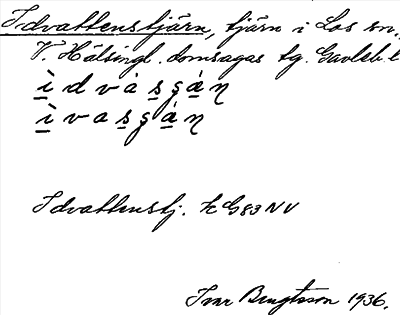 Idvattenstjärn, tjärn i Los sn.,
V. Hälsingl. domsagas tg. Gävleb. l.
ìdvàsgàn
ìvasgàn
Idvattenstj. k G83NV
Ivar Bengtsson 1936.